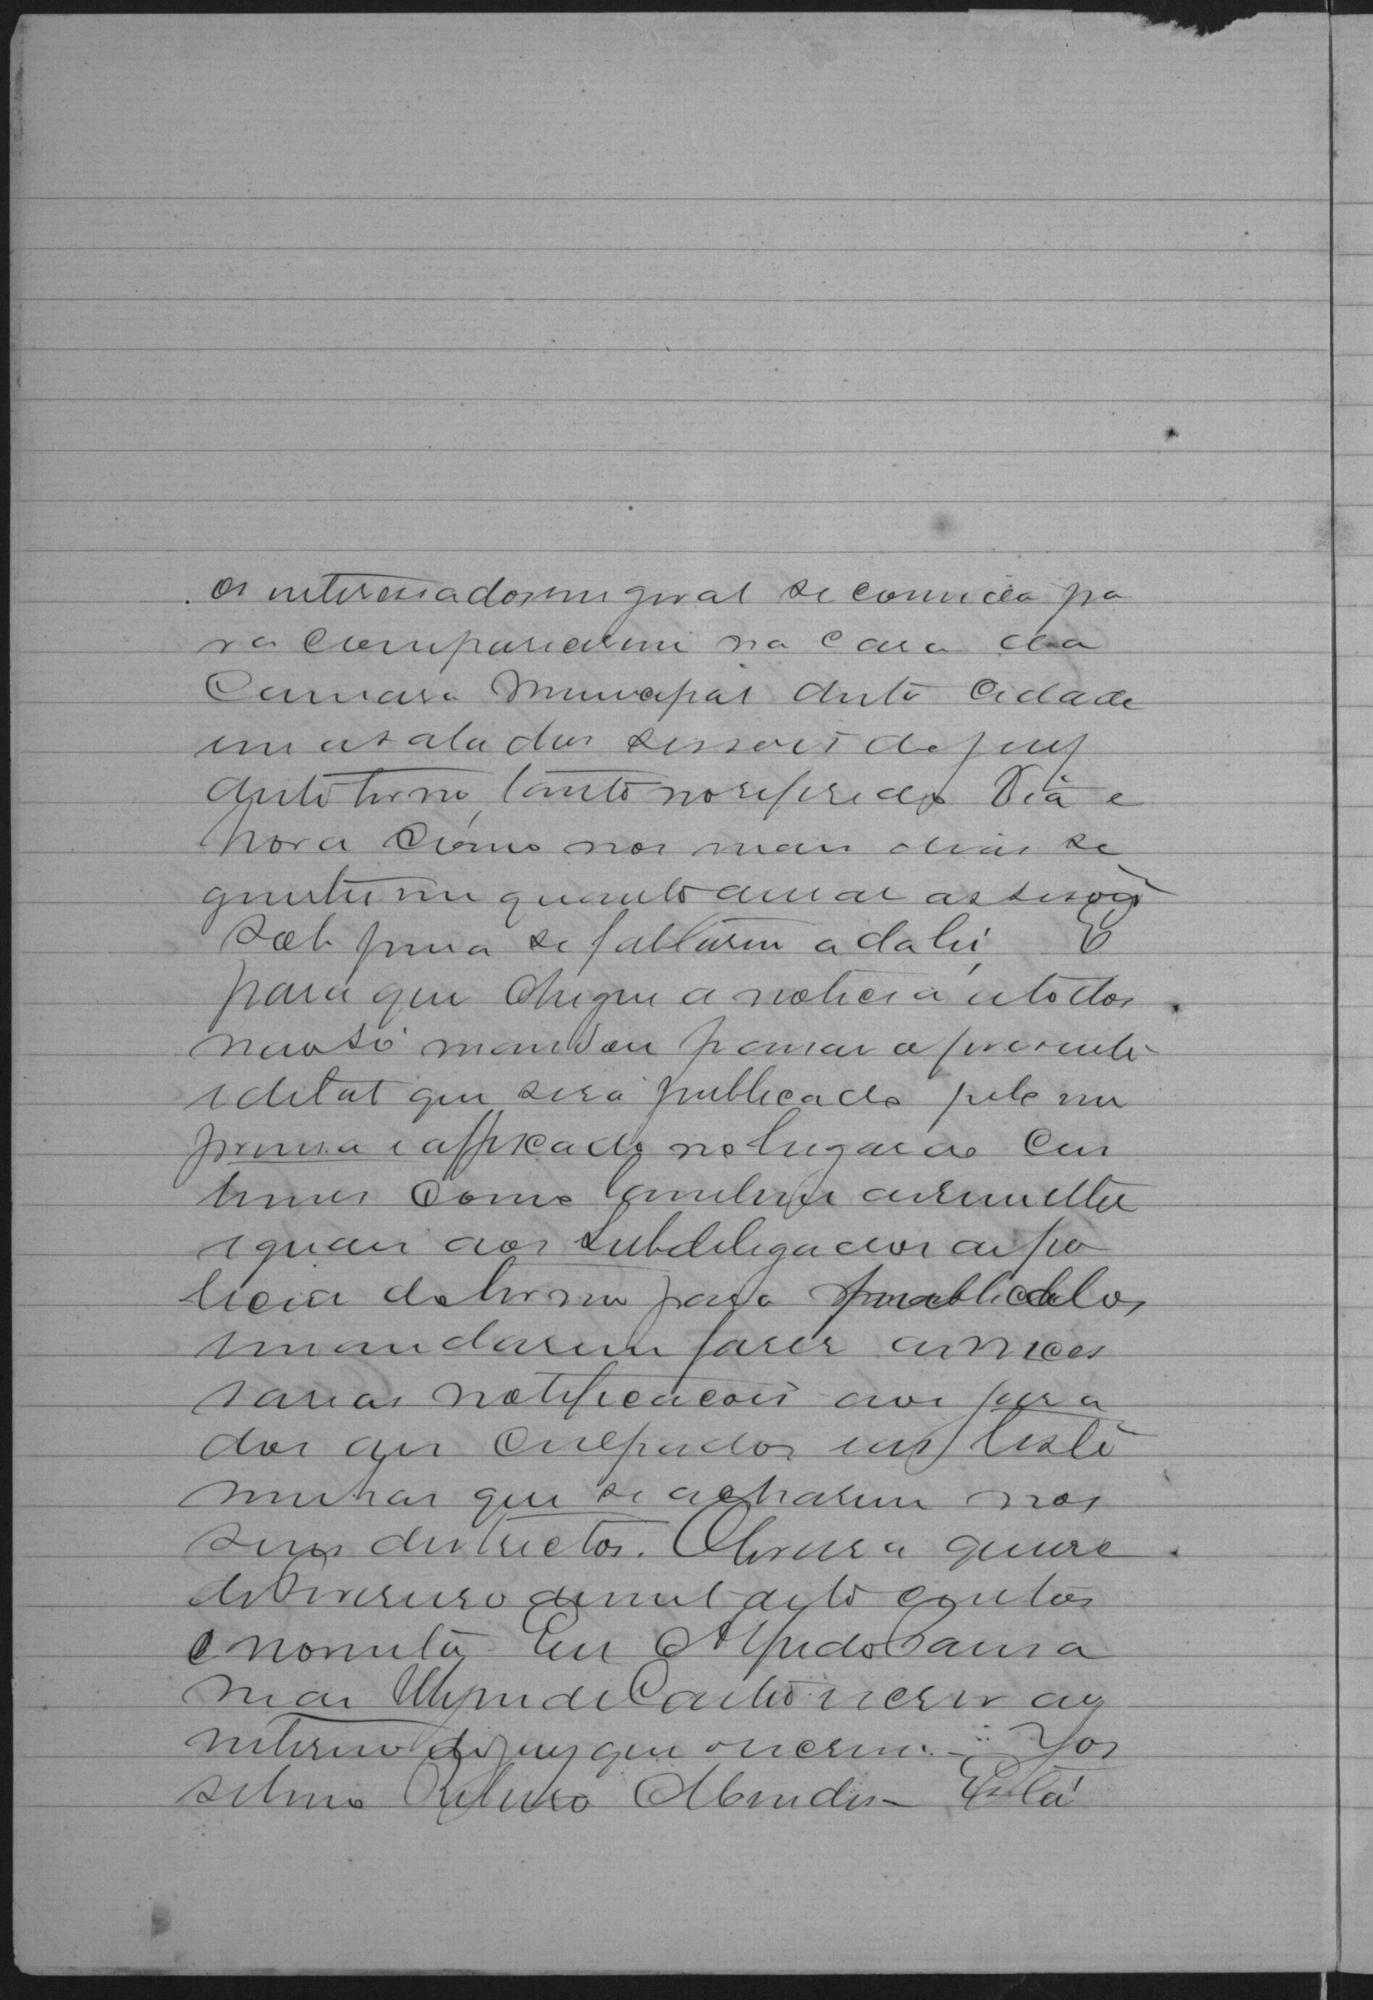 os interessados em geral se convida pa
ra comparecerem na casa da
Camara Municipal desta Cidade
em a sala das sessoes do jury
deste termo, tanto no referido dia e
hora como nos mais dias se
guintes em quanto durar as sessoes
sob pena se faltarem a da lei, E
para que chegue a noticia a todos
mandou passar o presente
edital que será publicado pela im
prensa e affixado no lugar do cos
tume como tambem a remetter
iguaes aos subdelegados de po
licia do termo para publical-os
e mandarem faser as neces
sarias notificacoes aos jura
dos aos culpados e as teste
munhas que se acharem nos
seus districtos. Oliveira quinze
de Fevereiro de mil oito centos
e noventa Eu Alfredo
de Castro escrivão
interino do jury que o escrevi. – Jos
selino Ribeiro Mendes – Está